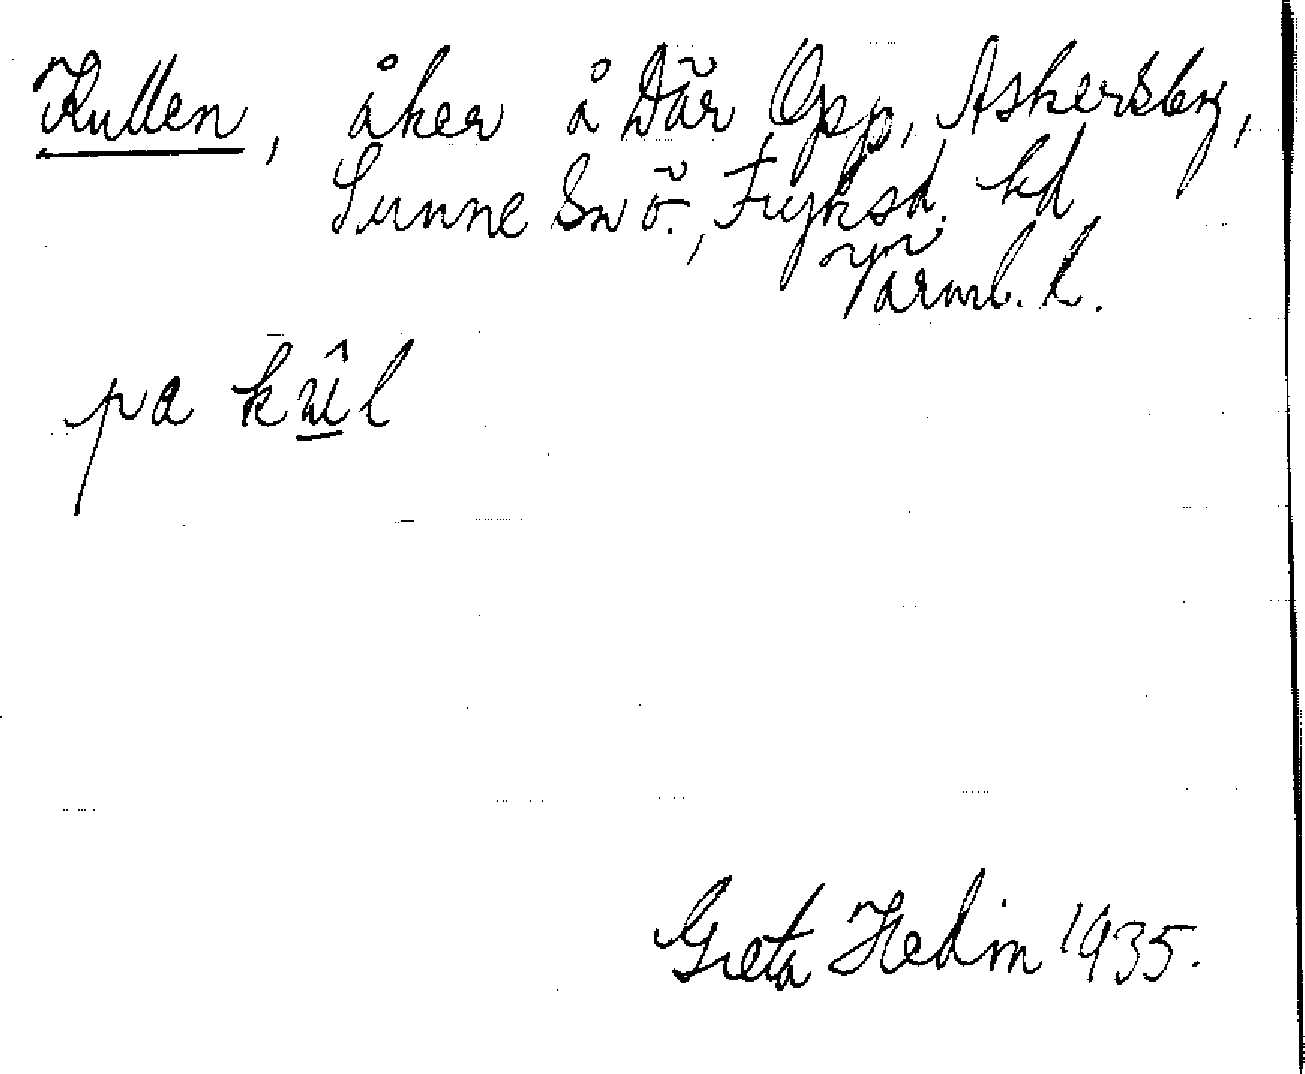 Kullen, åker å Där Opp, Askersby,
Sunne Sn ö., Fryksd. hd
Värml. l.
pa kûl
Greta Hedin 1935.